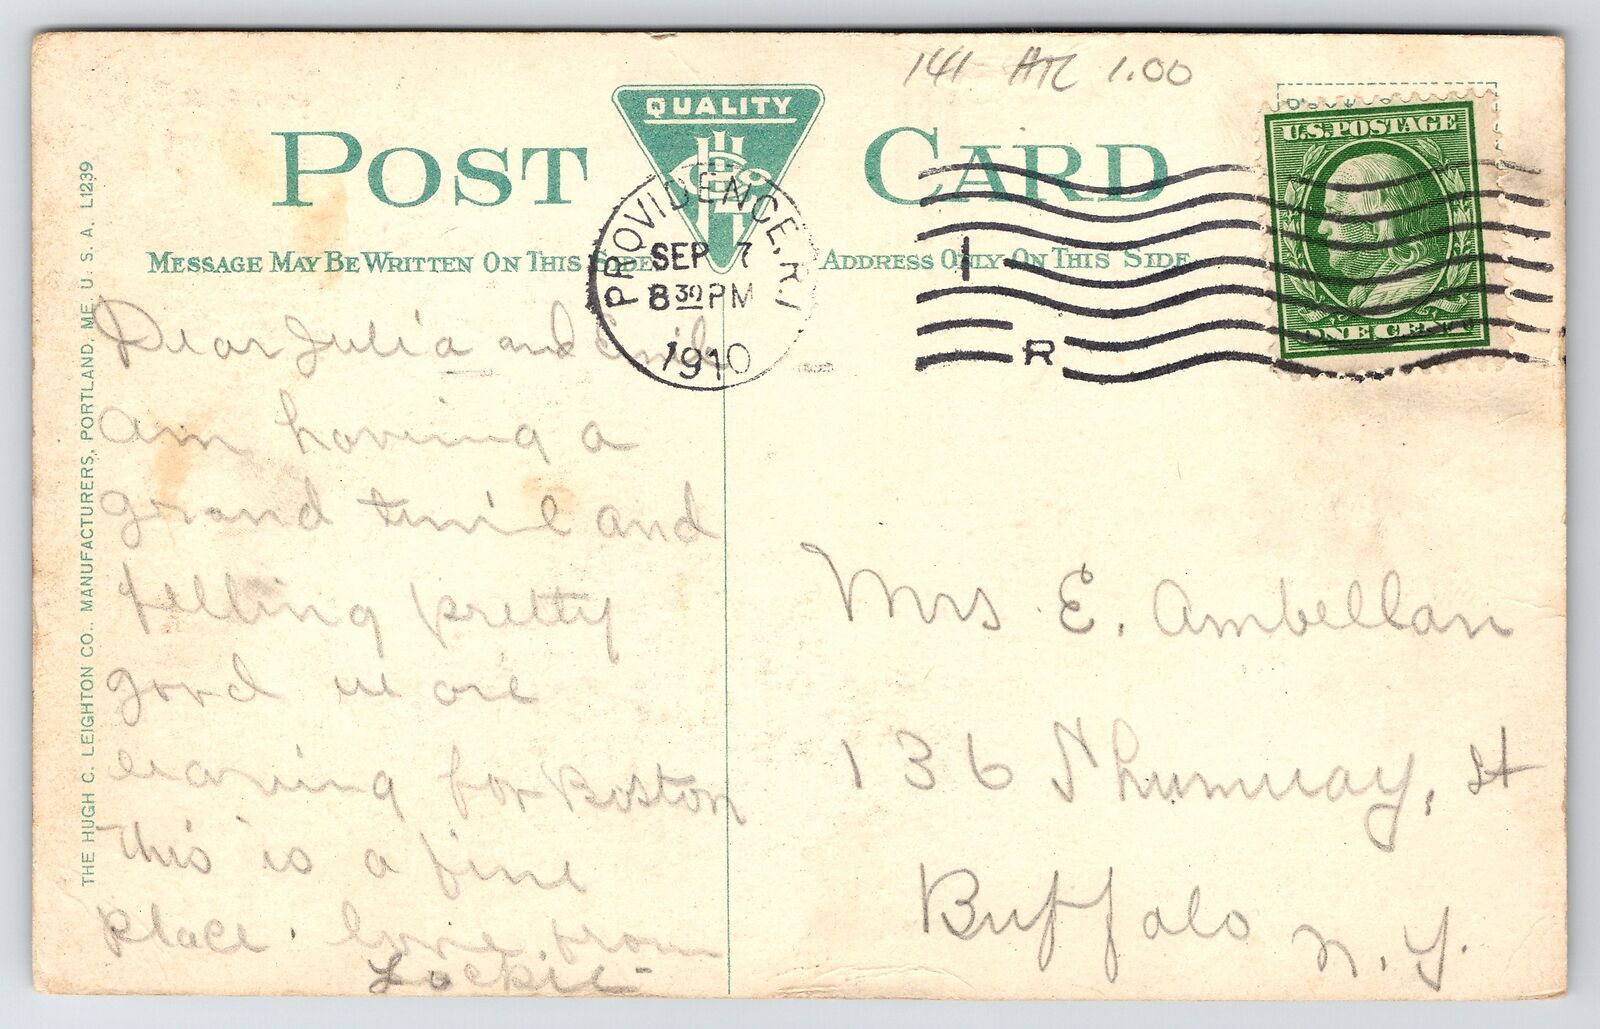 141 ATL 1.00
QUALITY
POST CARD
U.S. POSTAGE
ONE CENT
MESSAGE MAY BE WRITTEN ON THIS SIDE
ADDRESS ONLY ON THIS SIDE
PROVIDENCE, R.I.
SEP 7
8 30 PM
1910
R
THE HUGH C. LEIGHTON CO., MANUFACTURERS, PORTLAND, ME. U. S. A. L1239
Dear Julia and Emil
am having a
grand time and
felling pretty
good we are
leaving for Boston
this is a fine
place. love from
Lockie
Mrs E. Ambellan
136 Shumway, St
Buffalo
N.Y.